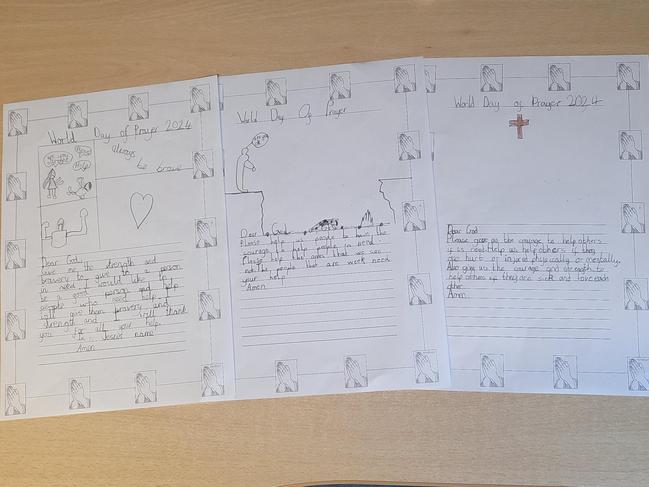 World Day of Prayer 2024
always
be brave
Dear God,
give me the strength and
bravery to give to a person
in need. I would like to
be a great person and help
people who need help. I
will give them bravery and
strength and I will thank
you for all your help
In Jesus name
Amen
World Day Of Prayer
Dear God
Please help us people to have the
courage to help people in need.
Please help the ones that we see
not the people that are week need
your help
Amen
World Day of Prayer 2024
Dear God
Please give us the courage to help others
if in need. Help us help others if they
are hurt or injured physically or mentally.
Also give us the courage and strength to
help others if they are sick and love each
other
Amen